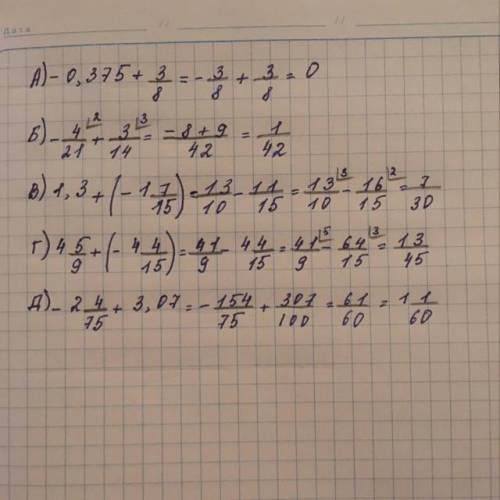 Дата
А) - 0,375 + 3/8 = - 3/8 + 3/8 = 0
Б) - 4/21 ⌊2 + 3/14 ⌊3 = -8+9/42 = 1/42
В) 1,3 + (- 1 1/15) = 13/10 - 1 1/15 = 13/10 ⌊3 - 16/15 ⌊2 = 7/30
Г) 4 5/9 + (- 4 4/15) = 41/9 - 4 4/15 = 41/9 ⌊5 - 64/15 ⌊3 = 13/45
Д) - 2 4/75 + 3,07 = - 154/75 + 307/100 = 61/60 = 1 1/60